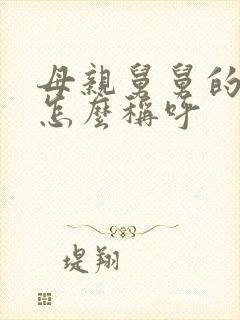 母親舅舅的
怎麼稱呼
堤翔